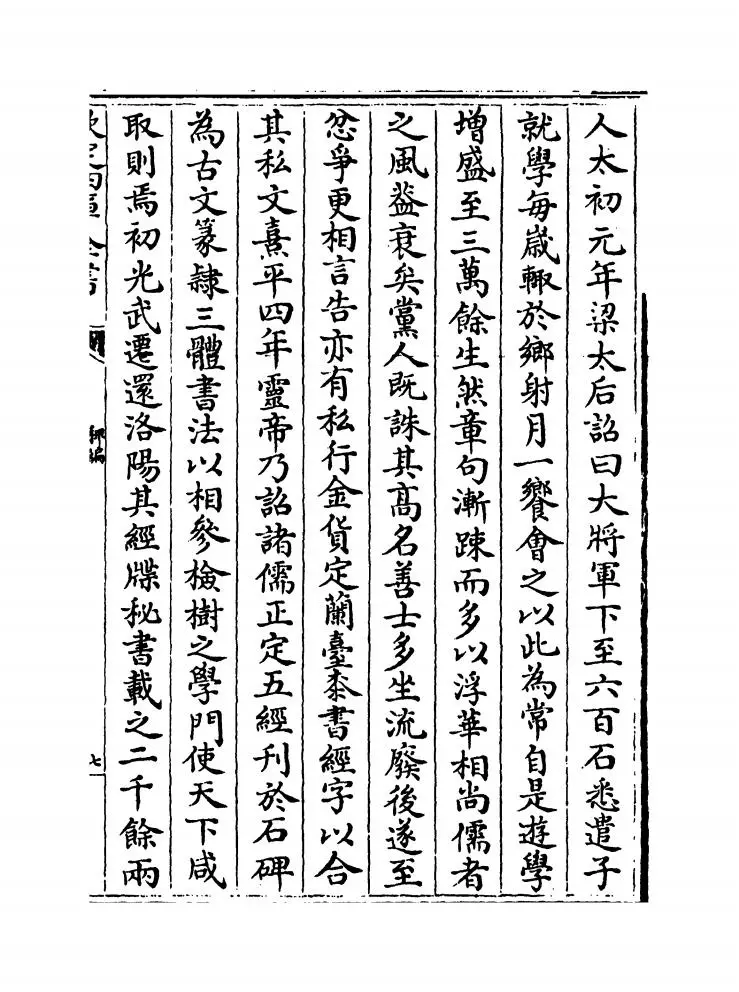 人太初元年梁太后詔曰大將軍下至六百石悉遣子
就學每嵗輙於鄉射月一饗㑹之以此為常自是遊學
增盛至三萬餘生然章句漸踈而多以浮華相尚儒者
之風益衰矣黨人既誅其髙名善士多坐流廢後遂至
忿爭更相言告亦有私行金貨定蘭臺桼書經字以合
其私文熹平四年靈帝乃詔諸儒正定五經刋於石碑
為古文篆隷三體書法以相參檢樹之學門使天下咸
取則焉初光武遷還洛陽其經牒秘書載之二千餘兩
稗編
七